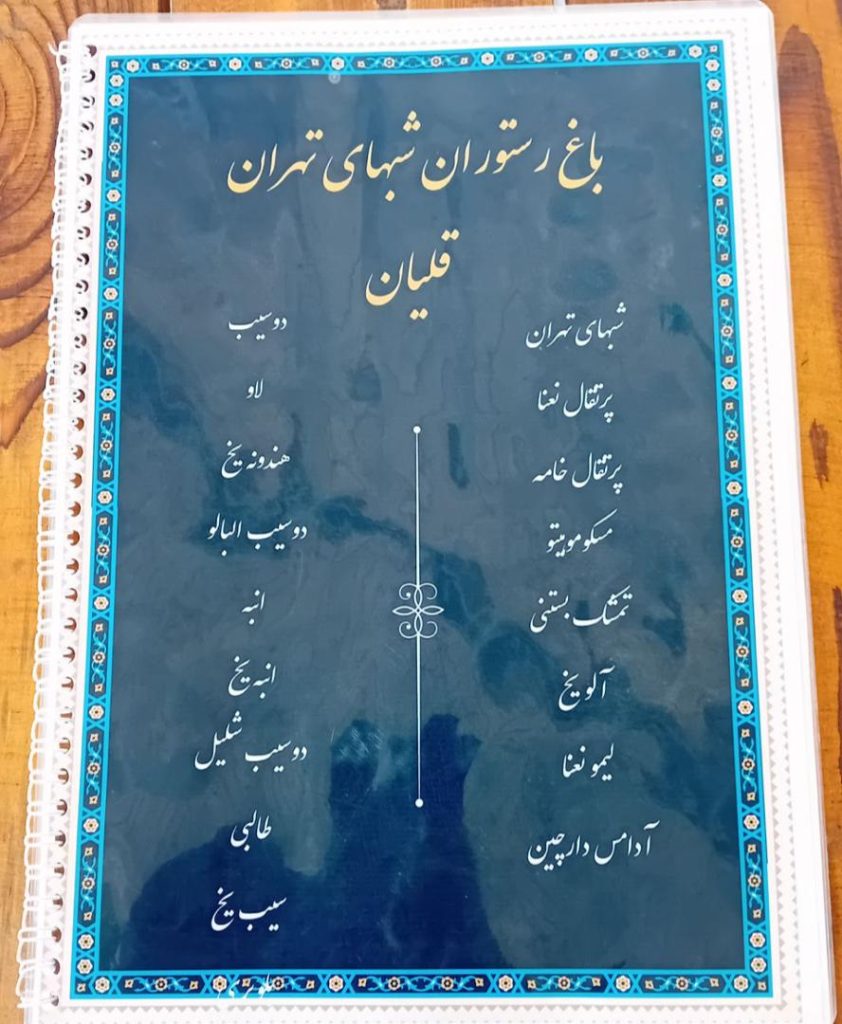 باغ رستوران شبهای تهران
قلیان
شبهای تهران
پرتقال نعنا
پرتقال خامه
مسکو موهیتو
تمشک بستنی
آلو یخ
لیمو نعنا
آدامس دارچین
دوسیب
لاو
هندونه یخ
دوسیب البالو
انبه
انبه یخ
دوسیب شلیل
طالبی
سیب یخ